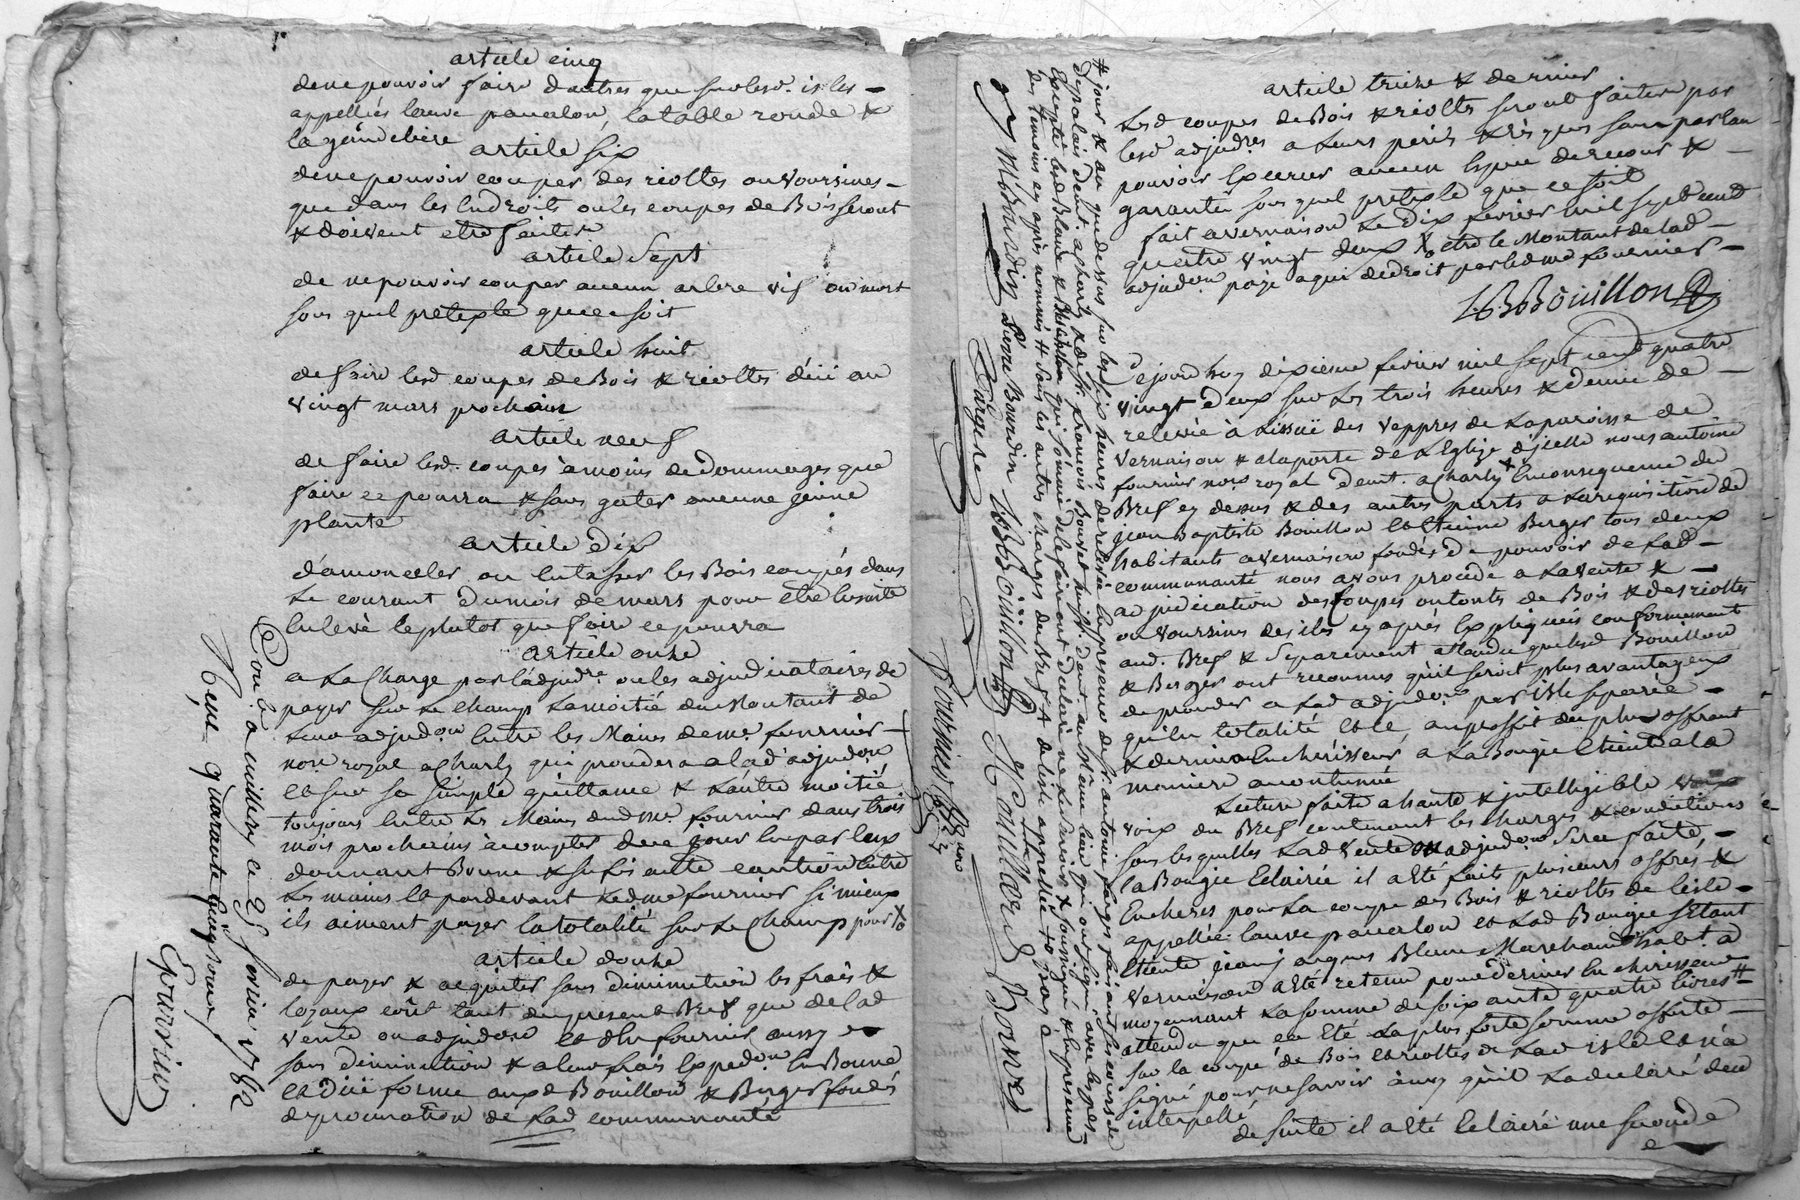 article cinq
de ne pouvoir faire d'autres que sur lesd. isles
appellées lauve panalon, la table ronde &
la gandoliere
article six
de ne pouvoir couper des riottes ou voursines
que dans les endroits ou les coupes de Bois seront
& doivent etre faittes
article Sept
de ne pouvoir couper aucun arbre vif ou mort
sous quel pretexte que ce soit
article huit
de faire lesd coupes de Bois & riottes d'ici au
vingt mars prochain
article neuf
de faire lesd. coupes a moins de dommages que
faire ce pourra & sans gater aucune jeune
plante
article dix
d'amonceler ou entasser les Bois coupés dans
le courant du mois de mars pour etre ensuite
enlevé le plutot que faire ce pourra
article onze
a la Charge par l'adjudre. ou les adjudicataires de
payer sur le champ la moitié du Montant de
leur adjudon entre les Mains de me. fournier
nore royal a Charly qui procedera a lad adjudon
et sur sa simple quittance & l'autre moitié
toujours entre les Mains dud me fournier dans trois
mois prochains a compter de ce jour en par eux
donnant Bonne & suffisante caution entre
les mains et pardevant led me fournier si mieux
ils aiment payer la totalité sur le Champ pour
article douze
de payer & acquiter sans diminution les frais &
loyaux coût tant du present Bref que de lad
vente ou adjudon et d'en fournir aussy
sans diminution & a leur frais Expedon en Bonne
et düe forme auxd Bouillon & Berger fondés
de procuration de lad communauté
Con.lé a millery ce 25 fevrier 1782
Reçu quarante cinq sous
article treize & dernier
Lesd coupes de Bois & riottes seront faites par
lesd adjudres a leurs perils & risques sans par eux
pouvoir Exercer aucun Espece de recour &
garantie sous quel pretexte que ce soit
fait a vernaison le dix fevrier mil sept cent
quatre vingt deux & etre le Montant de lad
adjudon payé a qui de droit par led me fournier
J.B. Bouillon
Cejourd'huy dixieme fevrier mil sept cent quatre
vingt deux sur les trois heures & demie de
relevée à l'issüe des Veppres de la paroisse de
vernaison & a la porte de l'Eglize d'jcelle nous antoine
fournier nore royal demt. a Charly En consequence du
Bref cy dessus & des autres parts a la requisition de
jean Baptiste Bouillon et Etienne Berger tous deux
habitants a vernaison fondés de pouvoir de lad
communauté nous avons procedé a la vente &
adjudication des coupes ou tonts de Bois & des riottes
ou voursines des iles cy après Expliquées conformement
aud. Bref & Separement attendu que lesd Bouillon
& Berger ont reconnus qu'il seroit plus avantageux
de proceder a lad adjudon par isle separée
qu'en totalité et ce, au proffit du plus offrant
& dernier Encherisseur a la Bougie Eteinte a la
maniere acoutumée
Lecture faite a haute & jntelligible
voix du Bref contenant les charges & conditions
sous lesquelles lad vente ou adjudon sera faite
la Bougie Eclairée il a Eté fait plusieurs offres &
Encheres pour la coupe des Bois & riottes de l'isle
appellée lauve panalon et lad Bougie s'etant
Eteinte jean jacques Blanc Marchand habt. a
vernaison a Eté retenu pour dernier Encherisseur
moyennant la somme de soixante quatre livres #
attendu que ca Eté la plus forte somme offerte
sur la coupe de Bois et riottes de lad isle et n'a
signé pour ne savoir ainsy qu'il la declaré de ce
interpellé
de suite il a Eté Eclairé une seconde
# jour & an que dessus sur les six heures de relevée En presence de sr antoine
d'epalais demt. a Charly & de sr françois Bouvet huissr. demt. au Même lieu qui ont signé avec les par-
Excepté led Blanc &
des temoins cy après nommés # sous les autres charges du Bref # de l'isle appellée
M Bourdin Pierre Bourdin J.B. Bouillon
fournier nore